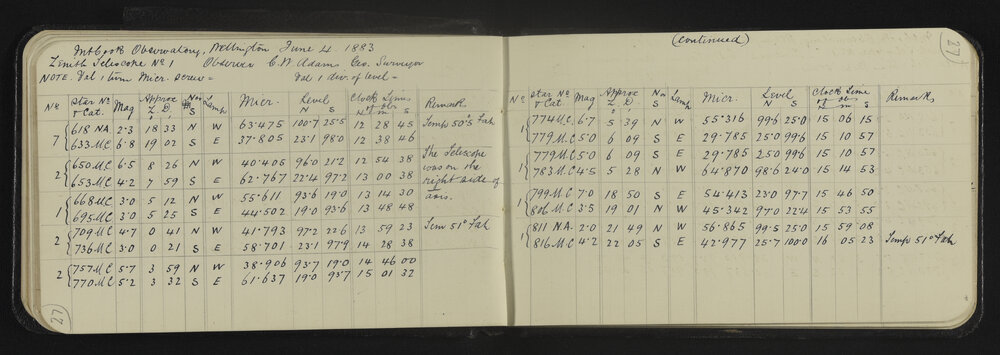 Mt Cook Observatory, Wellington June 4. 1883
Zenith Telescope No 1 Observer C. W. Adams Geo. Surveyor
NOTE. Val 1 turn Micr. screw = Val 1 div. of level =
No Star No & Cat. Mag Approx Z. D. N or S Lamp Micr. Level N S Clock Time h m s Remarks
7 618 NA 2.3 18 33 N W 63.475 100.7 25.5 12 28 45 Temp 50°.5 Fah
633 M.C 6.8 19 02 S E 37.805 23.1 98.0 12 38 46
2 650 M.C 6.5 8 26 N W 40.405 96.0 21.2 12 54 38 The Telescope was on the
653 M.C 4.2 7 59 S E 62.767 22.4 97.2 13 00 38 right side of
1 668 M.C 3.0 5 12 N W 55.611 93.6 19.0 13 14 30 axis.
695 M.C 3.0 5 25 S E 44.502 19.0 93.6 13 48 48
2 709 M.C 4.7 0 41 N W 41.793 97.2 22.6 13 59 23 Tem 51° Fah
736 M.C 3.0 0 21 S E 58.701 23.1 97.9 14 28 38
2 757 M.C 5.7 3 59 N W 38.906 93.7 19.0 14 46 00
770 M.C 5.2 3 32 S E 61.637 19.0 93.7 15 01 32
27
(continued)
27
No Star No & Cat. Mag Approx Z. D. N or S Lamp Micr. Level N S Clock Time h m s Remarks
1 774 M.C. 6.7 5 39 N W 55.316 99.6 25.0 15 06 15
779 M.C 5.0 6 09 S E 29.785 25.0 99.6 15 10 57
1 779 M.C 5.0 6 09 S E 29.785 25.0 99.6 15 10 57
783 M.C 4.5 5 28 N W 64.870 98.6 24.0 15 14 53
1 799 M.C 7.0 18 50 S E 54.413 23.0 97.7 15 46 50
806 M.C 3.5 19 01 N W 45.342 97.0 22.4 15 53 55
1 811 N.A. 2.0 21 49 N W 56.865 99.5 25.0 15 59 08
816 M.C 4.2 22 05 S E 42.977 25.7 100.0 16 05 23 Temp 51° Fah